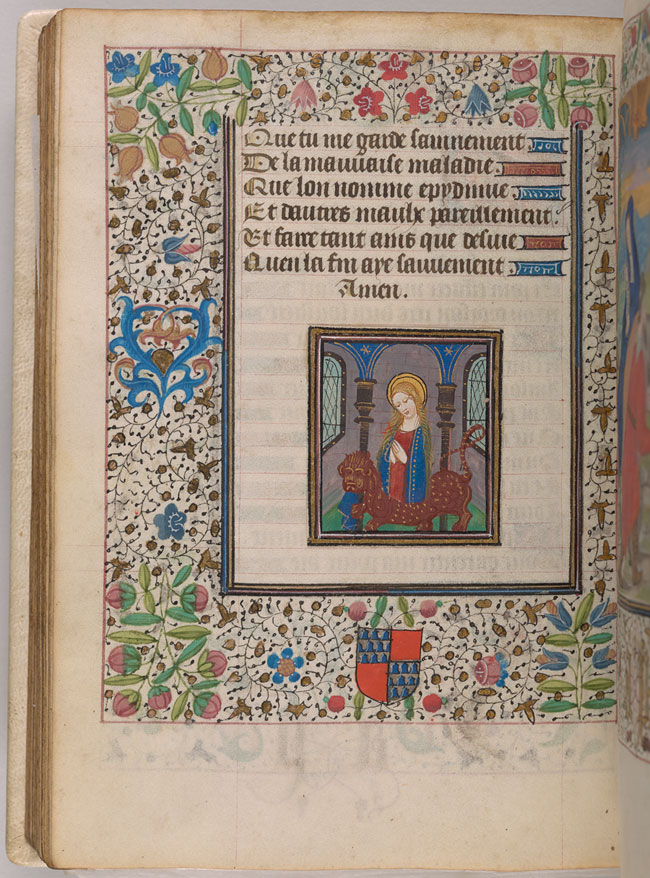 Que tu me garde sainnement
De la mauuaise maladie
Que lon nomme epydimie
Et dautres maulx pareillement:
Et faire tant amis que desuie
Quen la fin aye sauuement
Amen.